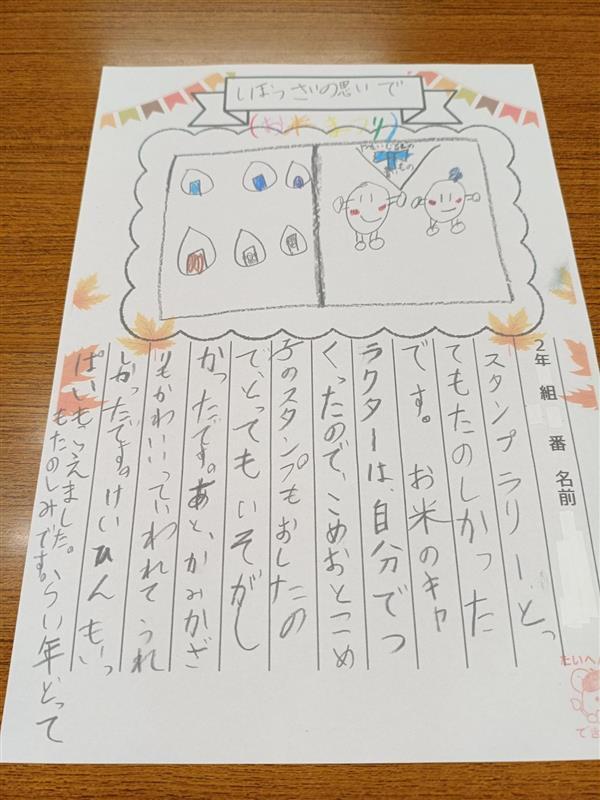 の思いで
(お米まつり)
2年 組 番 名前
スタンプラリー、とっ
てもたのしかった
です。お米のキャ
ラクターは、自分でつ
くったので、こめおとこめ
子のスタンプもおしたの
で、とってもいそがし
かったです。あと、かみかざ
りもかわいいっていわれてうれ
しかったです。けいひんもいっ
ぱいもらえました。らい年とって
もたのしみです。
たいへん
でき